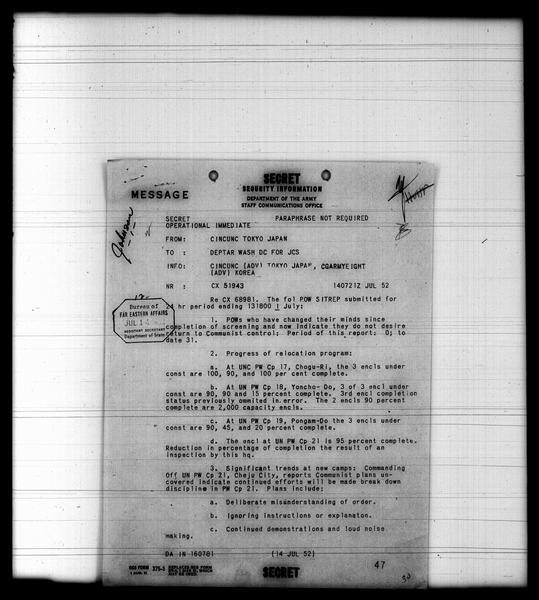 SECRET
SECURITY INFORMATION
DEPARTMENT OF THE ARMY
STAFF COMMUNICATIONS OFFICE
MESSAGE
Johnson
SECRET PARAPHRASE NOT REQUIRED
OPERATIONAL IMMEDIATE
FROM: CINCUNC TOKYO JAPAN
TO : DEPTAR WASH DC FOR JCS
INFO: CINCUNC (ADV) TOKYO JAPAN, CGARMYEIGHT
(ADV) KOREA
NR : CX 51943 140721Z JUL 52
Re CX 68981. The fol POW SITREP submitted for
24 hr period ending 131800 I July:
Bureau of
FAR EASTERN AFFAIRS
JUL 14
Department of State
1. POWs who have changed their minds since
completion of screening and now indicate they do not desire
return to Communist control; Period of this report: 0; to
date 31.
2. Progress of relocation program:
a. At UNC PW Cp 17, Chogu-Ri, the 3 encls under
const are 100, 90, and 100 per cent complete.
b. At UN PW Cp 18, Yoncho- Do, 3 of 3 encl under
const are 90, 90 and 15 percent complete. 3rd encl completion
status previously ommited in error. The 2 encls 90 percent
complete are 2,000 capacity encls.
c. At UN PW Cp 19, Pongam-Do the 3 encls under
const are 90, 45, and 20 percent complete.
d. The encl at UN PW Cp 21 is 95 percent complete.
Reduction in percentage of completion the result of an
inspection by this hq.
3. Significant trends at new camps: Commanding
Off UN PW Cp 21, Cheju City, reports Communist plans un-
covered indicate continued efforts will be made break down
discipline in PW Cp 21. Plans include:
a. Deliberate misunderstanding of order.
b. Ignoring instructions or explanaton.
c. Continued demonstrations and loud noise
making.
DA IN 160781 (14 JUL 52)
OCS FORM 375-3 REPLACES OCS FORM
375-3
SECRET
47